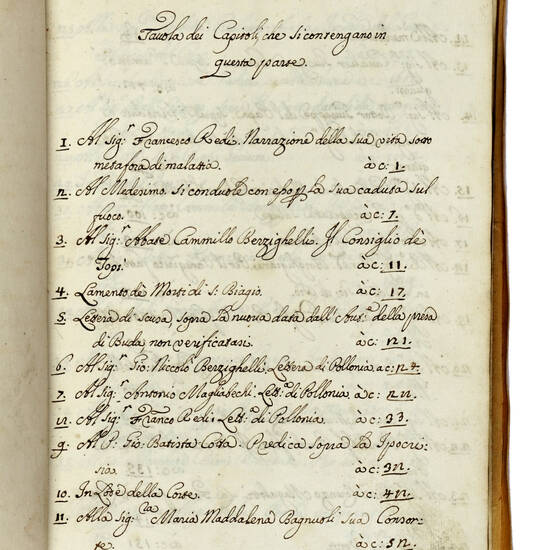 Tavola dei Capitoli, che si contengano in
questa parte.
1. Al Sig.r Francesco Redi. Narrazione della sua vita sotto
metafora di malattia. à c: 1.
2. Al Medesimo. Si conduole con esso p la sua caduta sul
fuoco. à c: 7.
3. Al Sig.r Abate Cammillo Berzighelli. Il Consiglio de
Topi. à c: 11.
4. Lamento de Morti di S: Biagio. à c: 17.
5. Lettera di scusa sopra la nuova data dall' Aut.e della presa
di Buda non verificatasi. à c: 21.
6. Al Sig.r Gio: Niccolò Berzighelli. Lettera di Pollonia. a c: 24.
7. Al Sig.r Antonio Magliabechi. Lett.a di Pollonia. à c: 22.
8. Al Sig.r Franco Redi. Lett.a di Pollonia. à c: 33.
9. Al P. Gio: Batista Cotta. Predica sopra la Ipocri-
sia. à c: 32.
10. In Lode della Corte. à c: 42.
11. Alla Sig.ra Maria Maddalena Bagnuoli sua Consor-
te. à c: 52.